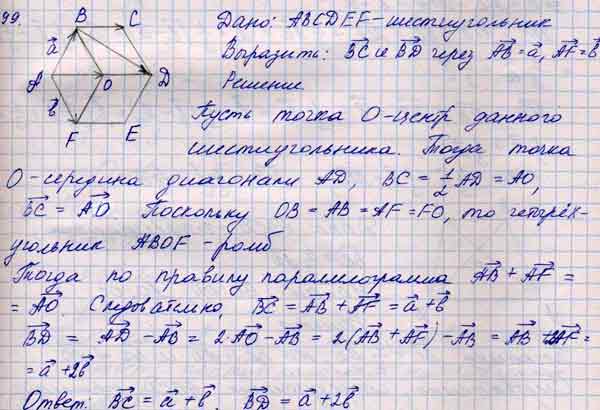 99.
B C
A O D
F E
a⃗
b⃗
Дано: ABCDEF-шестиугольник
Выразить: B͞C⃗ и BD⃗ через AB⃗ = a⃗, AF⃗ = b⃗
Решение
Пусть точка O-центр данного
шестиугольника. Тогда точка
O-середина диагонали AD, BC = 1/2 AD = AO,
BC⃗ = AO⃗. Поскольку OB = AB = AF = FO, то четырёх-
угольник ABOF - ромб
Тогда по правилу параллелограмма AB⃗ + AF⃗ =
= AO⃗. Следовательно, BC⃗ = AB⃗ + AF⃗ = a⃗ + b⃗
BD⃗ = AD⃗ - AB⃗ = 2·AO⃗ - AB⃗ = 2(AB⃗ + AF⃗) - AB⃗ = AB⃗ + 2AF⃗ =
= a⃗ + 2b⃗
Ответ: BC⃗ = a⃗ + b⃗, BD⃗ = a⃗ + 2b⃗